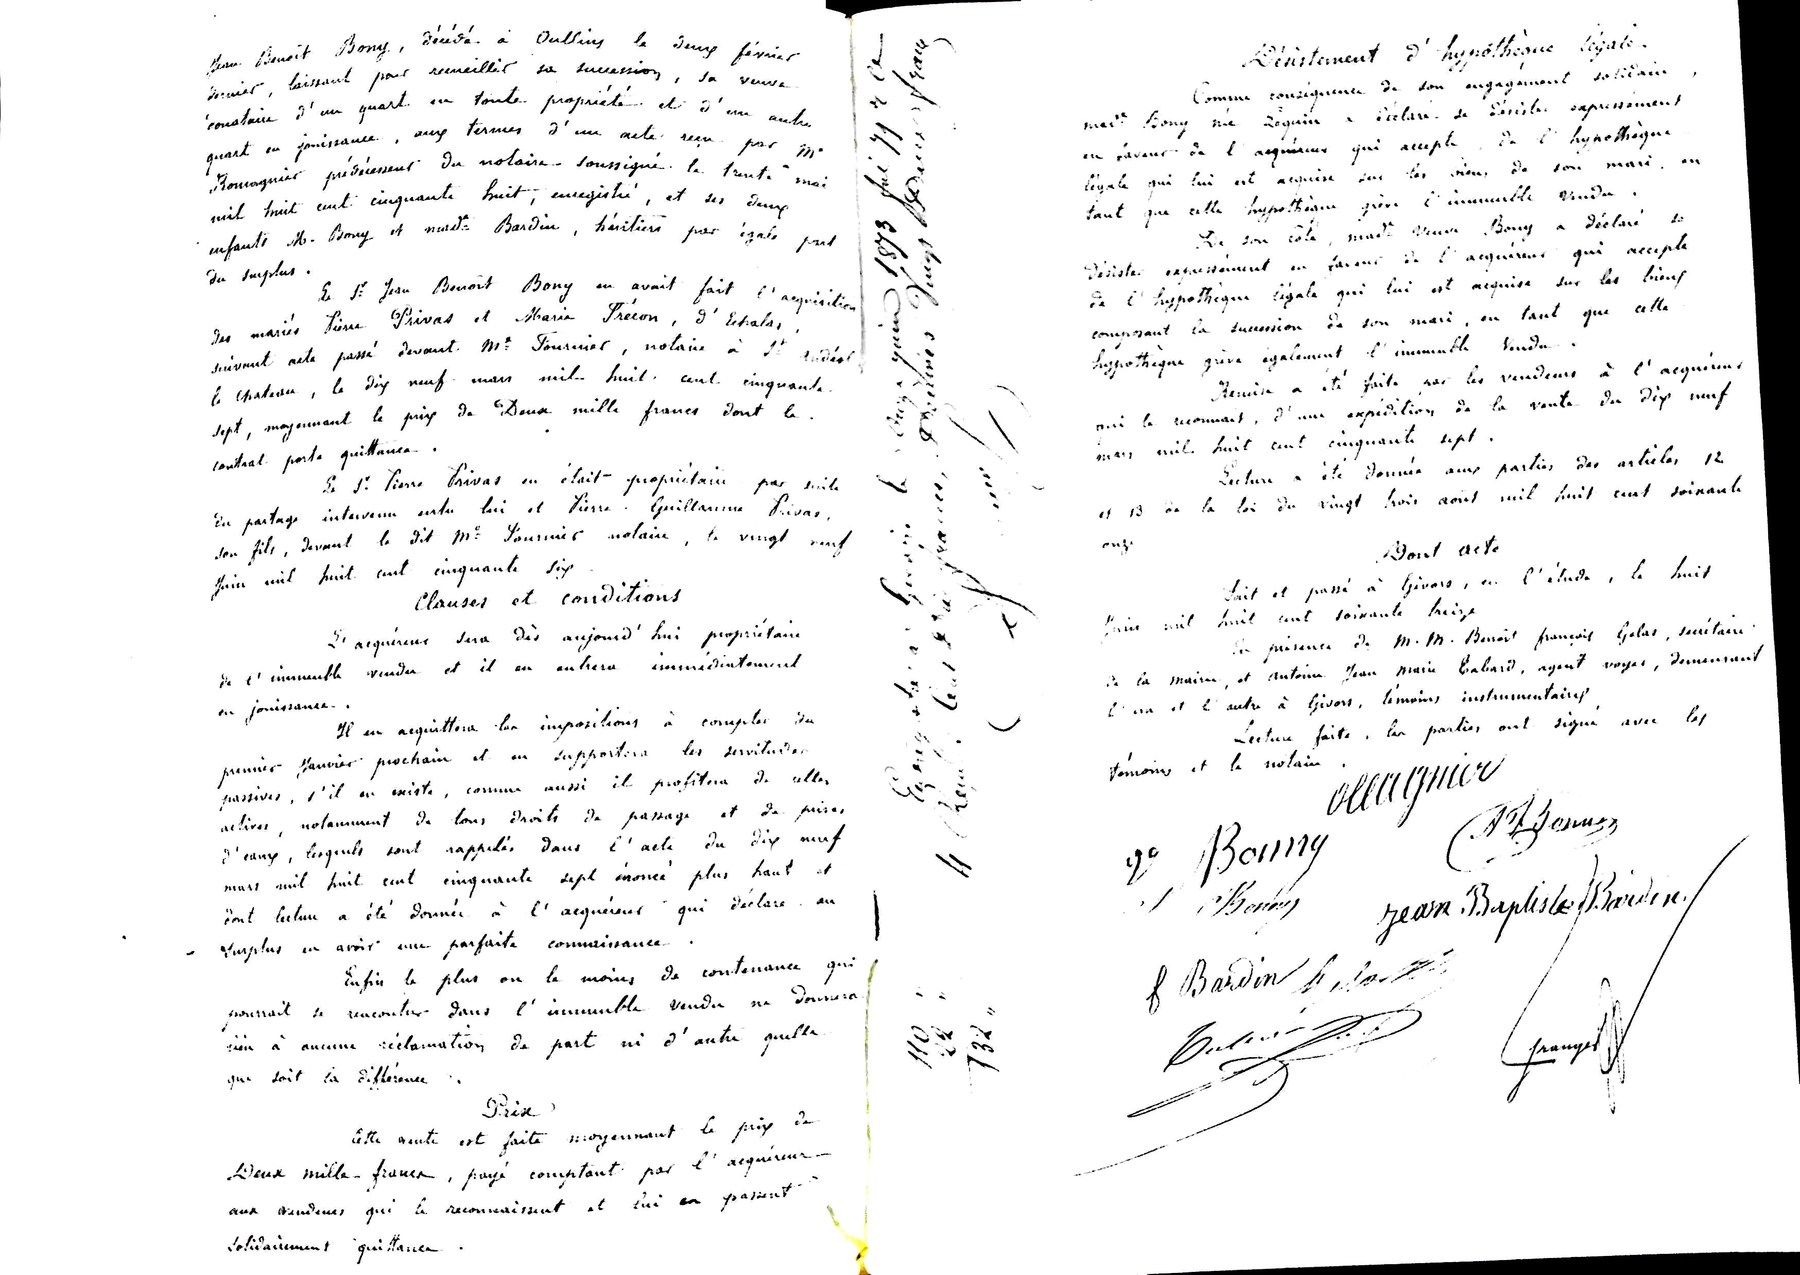 Jean Benoît Bony, décédé à Oullins le deux février
dernier, laissant pour recueillir sa succession, sa veuve
donataire d'un quart en toute propriété et d'un autre
quart en jouissance, aux termes d'un acte reçu par Me
Romagnier prédécesseur du notaire soussigné le trente mai
mil huit cent cinquante huit, enregistré, et ses deux
enfants M. Bony et made Bardin, héritiers par égale part
du surplus.
Le Sr Jean Benoît Bony en avait fait l'acquisition
des mariés Pierre Privas et Marie Frécon, d'Echalas,
suivant acte passé devant Me Fournier, notaire à St Andéol
le chateau, le dix neuf mars mil huit cent cinquante
sept, moyennant le prix de Deux mille francs dont le
contrat porte quittance.
Le Sr Pierre Privas en était propriétaire par suite
du partage intervenu entre lui et Pierre Guillaume Privas,
son fils, devant le dit Me Fournier notaire, le vingt neuf
Juin mil huit cent cinquante six
Clauses et conditions
L'acquéreur sera dès aujourd'hui propriétaire
de l'immeuble vendu et il en entrera immédiatement
en jouissance.
Il en acquittera les impositions à compter du
premier Janvier prochain et en supportera les servitudes
passives, s'il en existe, comme aussi il profitera de celles
actives, notamment de tous droits de passage et de prises
d'eaux, lesquels sont rappelés dans l'acte du dix neuf
mars mil huit cent cinquante sept énoncé plus haut et
dont lecture a été donnée à l'acquéreur qui déclare au
surplus en avoir une parfaite connaissance.
Enfin le plus ou le moins de contenance qui
pourrait se rencontrer dans l'immeuble vendu ne donnera
lieu à aucune réclamation de part ni d'autre quelle
que soit la différence.
Prix
Cette vente est faite moyennant le prix de
Deux mille francs, payé comptant par l'acquéreur
aux vendeurs qui le reconnaissent et lui en passent
solidairement quittance.
Enregistré à Givors le onze juin 1873 fol 71
Reçu cent dix francs, décimes vingt deux francs
110 "
22 "
132 "
Désistement d'hypothèque légale.
Comme conséquence de son engagement solidaire,
made Bony née a déclaré se désister expressément
en faveur de l'acquéreur qui accepte, de l'hypothèque
légale qui lui est acquise sur les biens de son mari, en
tant que cette hypothèque grève l'immeuble vendu.
De son côté, made Veuve Bony a déclaré se
désister expressément en faveur de l'acquéreur qui accepte
de l'hypothèque légale qui lui est acquise sur les biens
composant la succession de son mari, en tant que cette
hypothèque grève également l'immeuble vendu.
Remise a été faite par les vendeurs à l'acquéreur
qui le reconnait, d'une expédition de la vente du dix neuf
mars mil huit cent cinquante sept.
Lecture a été donnée aux parties des articles 12
et 13 de la loi du vingt trois août mil huit cent soixante
onze
Dont acte
Fait et passé à Givors, en l'étude, le huit
Juin mil huit cent soixante treize
En présence de M.M. Benoît françois Gelas, secrétaire
de la mairie, et Antoine Jean Marie Tabard, agent voyer, demeurant
l'un et l'autre à Givors, témoins instrumentaires
Lecture faite, les parties ont signé avec les
témoins et le notaire.
Bonny
Jean Baptiste Bardin
f Bardin